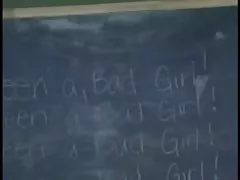 een a, Bad Girl!
een a Bad Girl!
een a Bad Girl!
a Bad Girl!